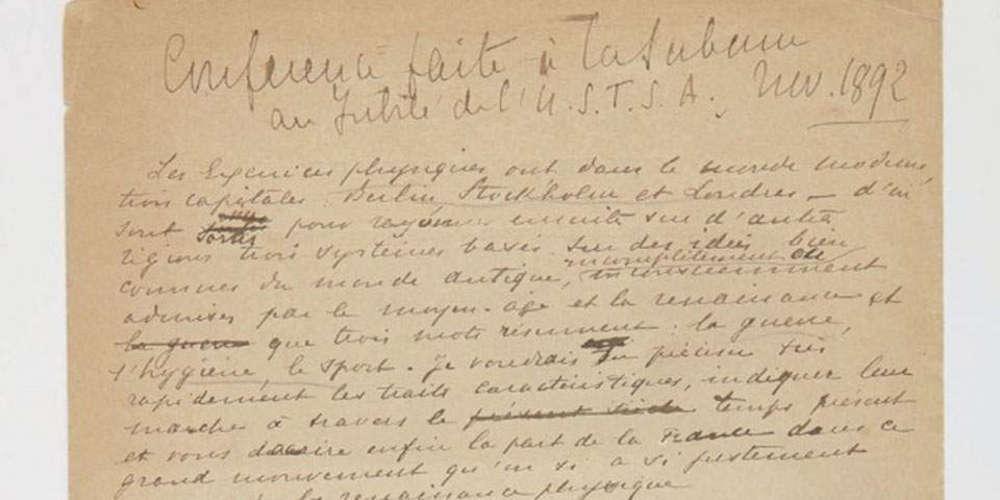 Conférence faite à la Sorbonne
au Jubilé de l'U.S.F.S.A. Nov. 1892
Les Exercices physiques ont dans le monde moderne
trois capitales: Berlin, Stockholm et Londres – d'où
sont sortis pour rayonner ensuite sur d'autres
régions trois systèmes basés sur des idées bien
connues du monde antique, incomplètement ou inconsciemment
admises par le moyen-âge et la renaissance et
la guerre que trois mots résument: la guerre,
l'hygiène, le sport. Je voudrais préciser très
rapidement les traits caractéristiques, indiquer leur
marche à travers le présent siècle temps présent
et vous dire enfin la part de la France dans ce
grand mouvement qu'on a si justement
la renaissance physique